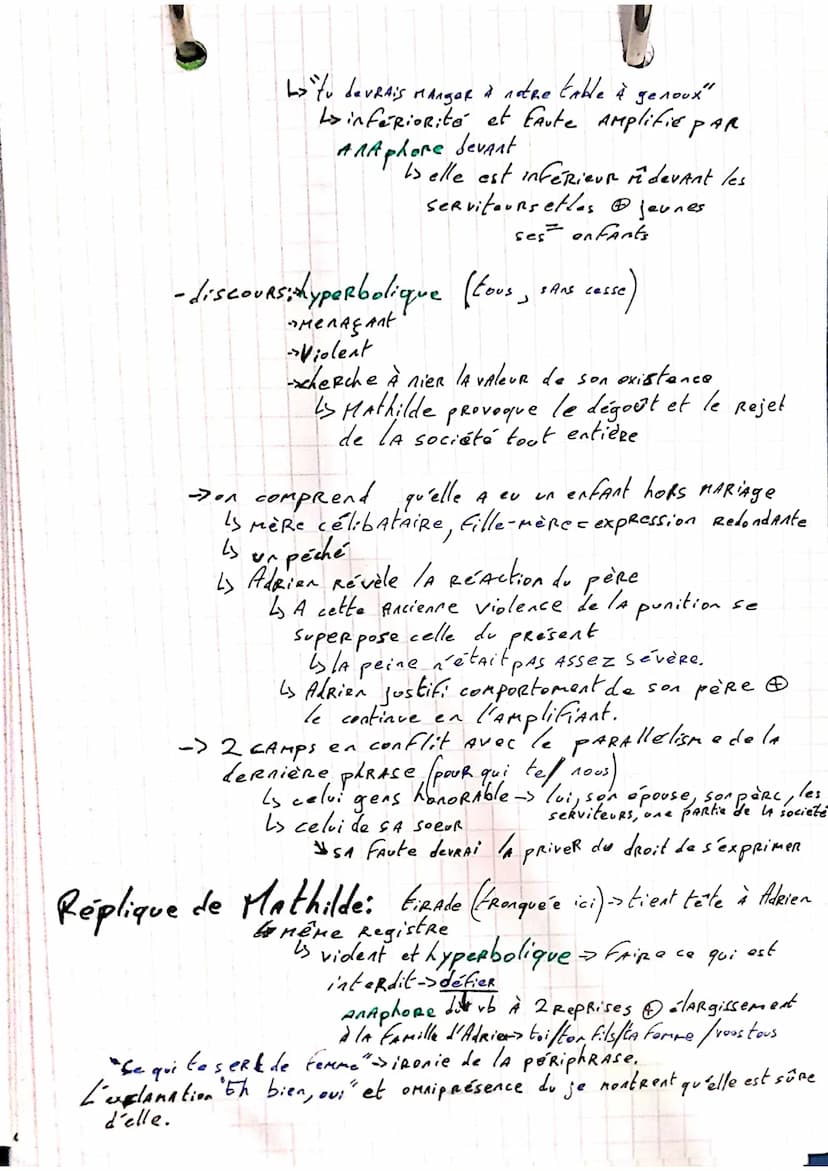 ↳"tu devrais manger à notre table à genoux"
↳infériorité et faute amplifié par
anaphore devant
↳ elle est inférieur m̂ devant les
serviteurs et les ⊕ jeunes
ses = enfants
- discours: hyperbolique (tous, sans cesse)
→menaçant
→Violent
→cherche à nier la valeur de son existence
↳ Mathilde provoque le dégoût et le rejet
de la société tout entière
→ on comprend qu'elle a eu un enfant hors mariage
↳ mère célibataire, fille-mère = expression redondante
↳ un péché
↳ Adrien révèle la réaction du père
↳ A cette ancienne violence de la punition se
superpose celle du présent
↳ la peine n'était pas assez sévère.
↳ Adrien justifi comportement de son père ⊕
le continue en l'amplifiant.
→ 2 camps en conflit avec le parallélisme de la
dernière phrase (pour qui te/ nous)
↳ celui gens honorable → lui, son épouse, son père, les
serviteurs, une partie de la société
↳ celui de sa soeur
↘ sa faute devrai la priver du droit de s'exprimer
Réplique de Mathilde: tirade (tronquée ici) → tient tête à Adrien
↳ même registre
↳ violent et hyperbolique → Faire ce qui est
interdit → défier
anaphore du vb à 2 reprises ⊕ élargissement
à la famille d'Adrien → toi/ton fils/ta femme /vous tous
"Ce qui te sert de femme" → ironie de la périphrase.
L'exclamation "Eh bien, oui" et omniprésence du je montrent qu'elle est sûre
d'elle.